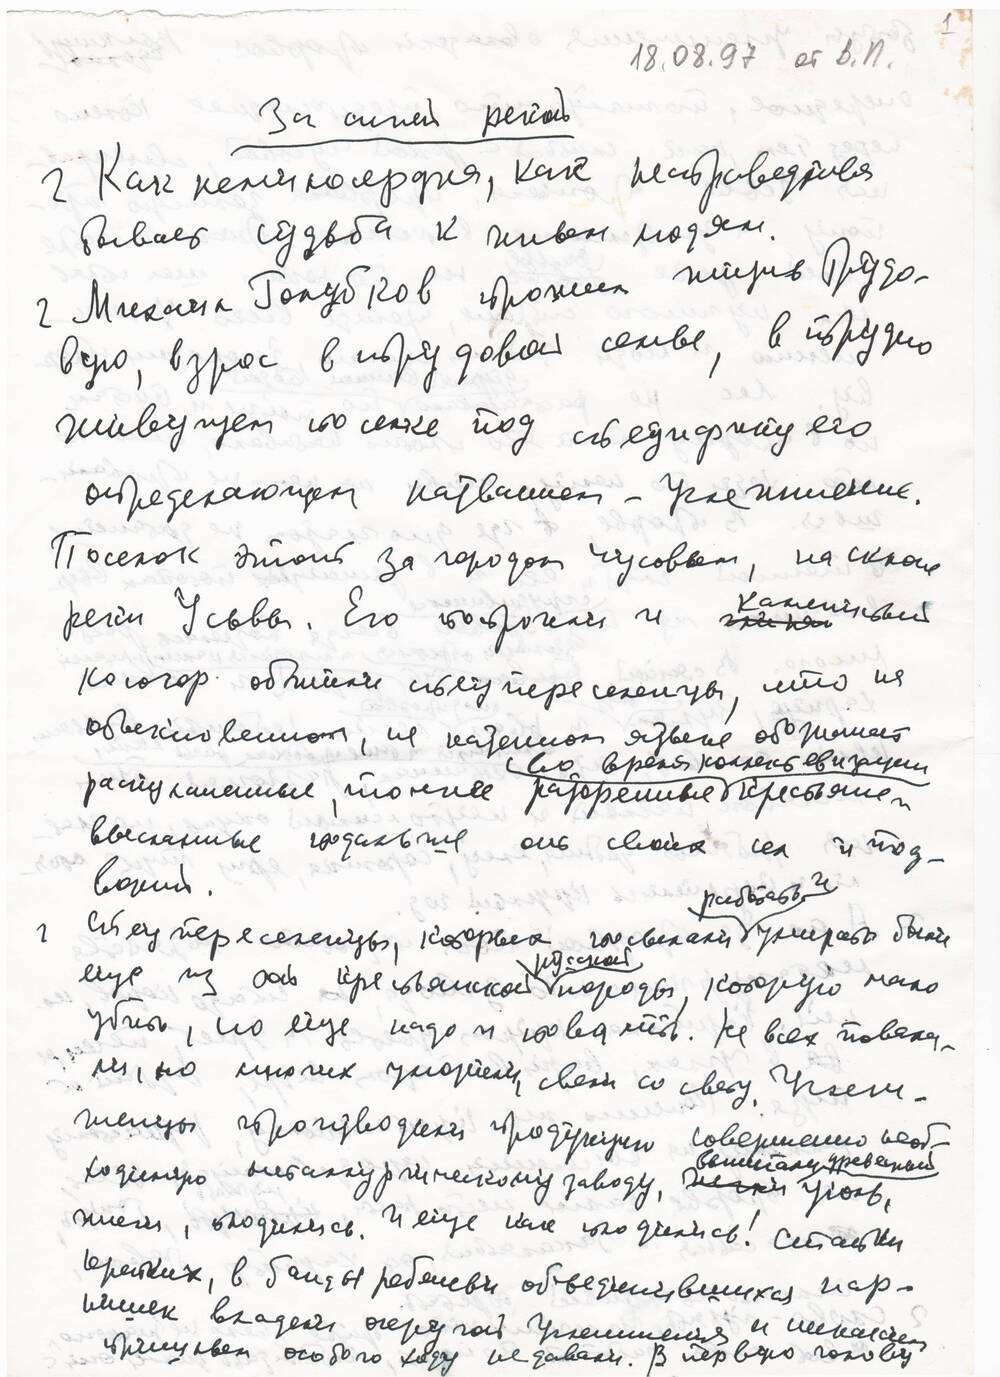 1
18.08.97 от В.П.
За синей рекой
Как немилосердна, как несправедлива
бывает судьба к живым людям.
Михаил Голубков прожил жизнь трудо-
вую, взрос в трудовой семье, в трудно
живущем поселке под специфику его
определяющем названием – Углежжение.
Поселок этот за городом Чусовым, на склоне
реки Усьвы. Его построили и каменистый
косогор обжили спецпереселенцы, что на
обыкновенном, не казенном языке обозначает
раскулаченные, точнее разоренные во время коллективизации крестьяне и
высланные подальше от своих сел и под-
ворий.
Спецпереселенцы, которых посылали работать и умирать были
еще из той крестьянской русской породы, которую мало
убить, но еще надо и повалить. Не всех повали-
ли, но многих уморили, свели со свету. Углеж-
женцы производили продукцию совершенно необ-
ходимую металлургическому заводу, древесный уголь,
жили, плодились. И еще как плодились! Стайки
крепких, в банды ребятни объединившихся пар-
нишек владели округой Углежжения и никаким
пришлым особого ходу не давали. В первую голову